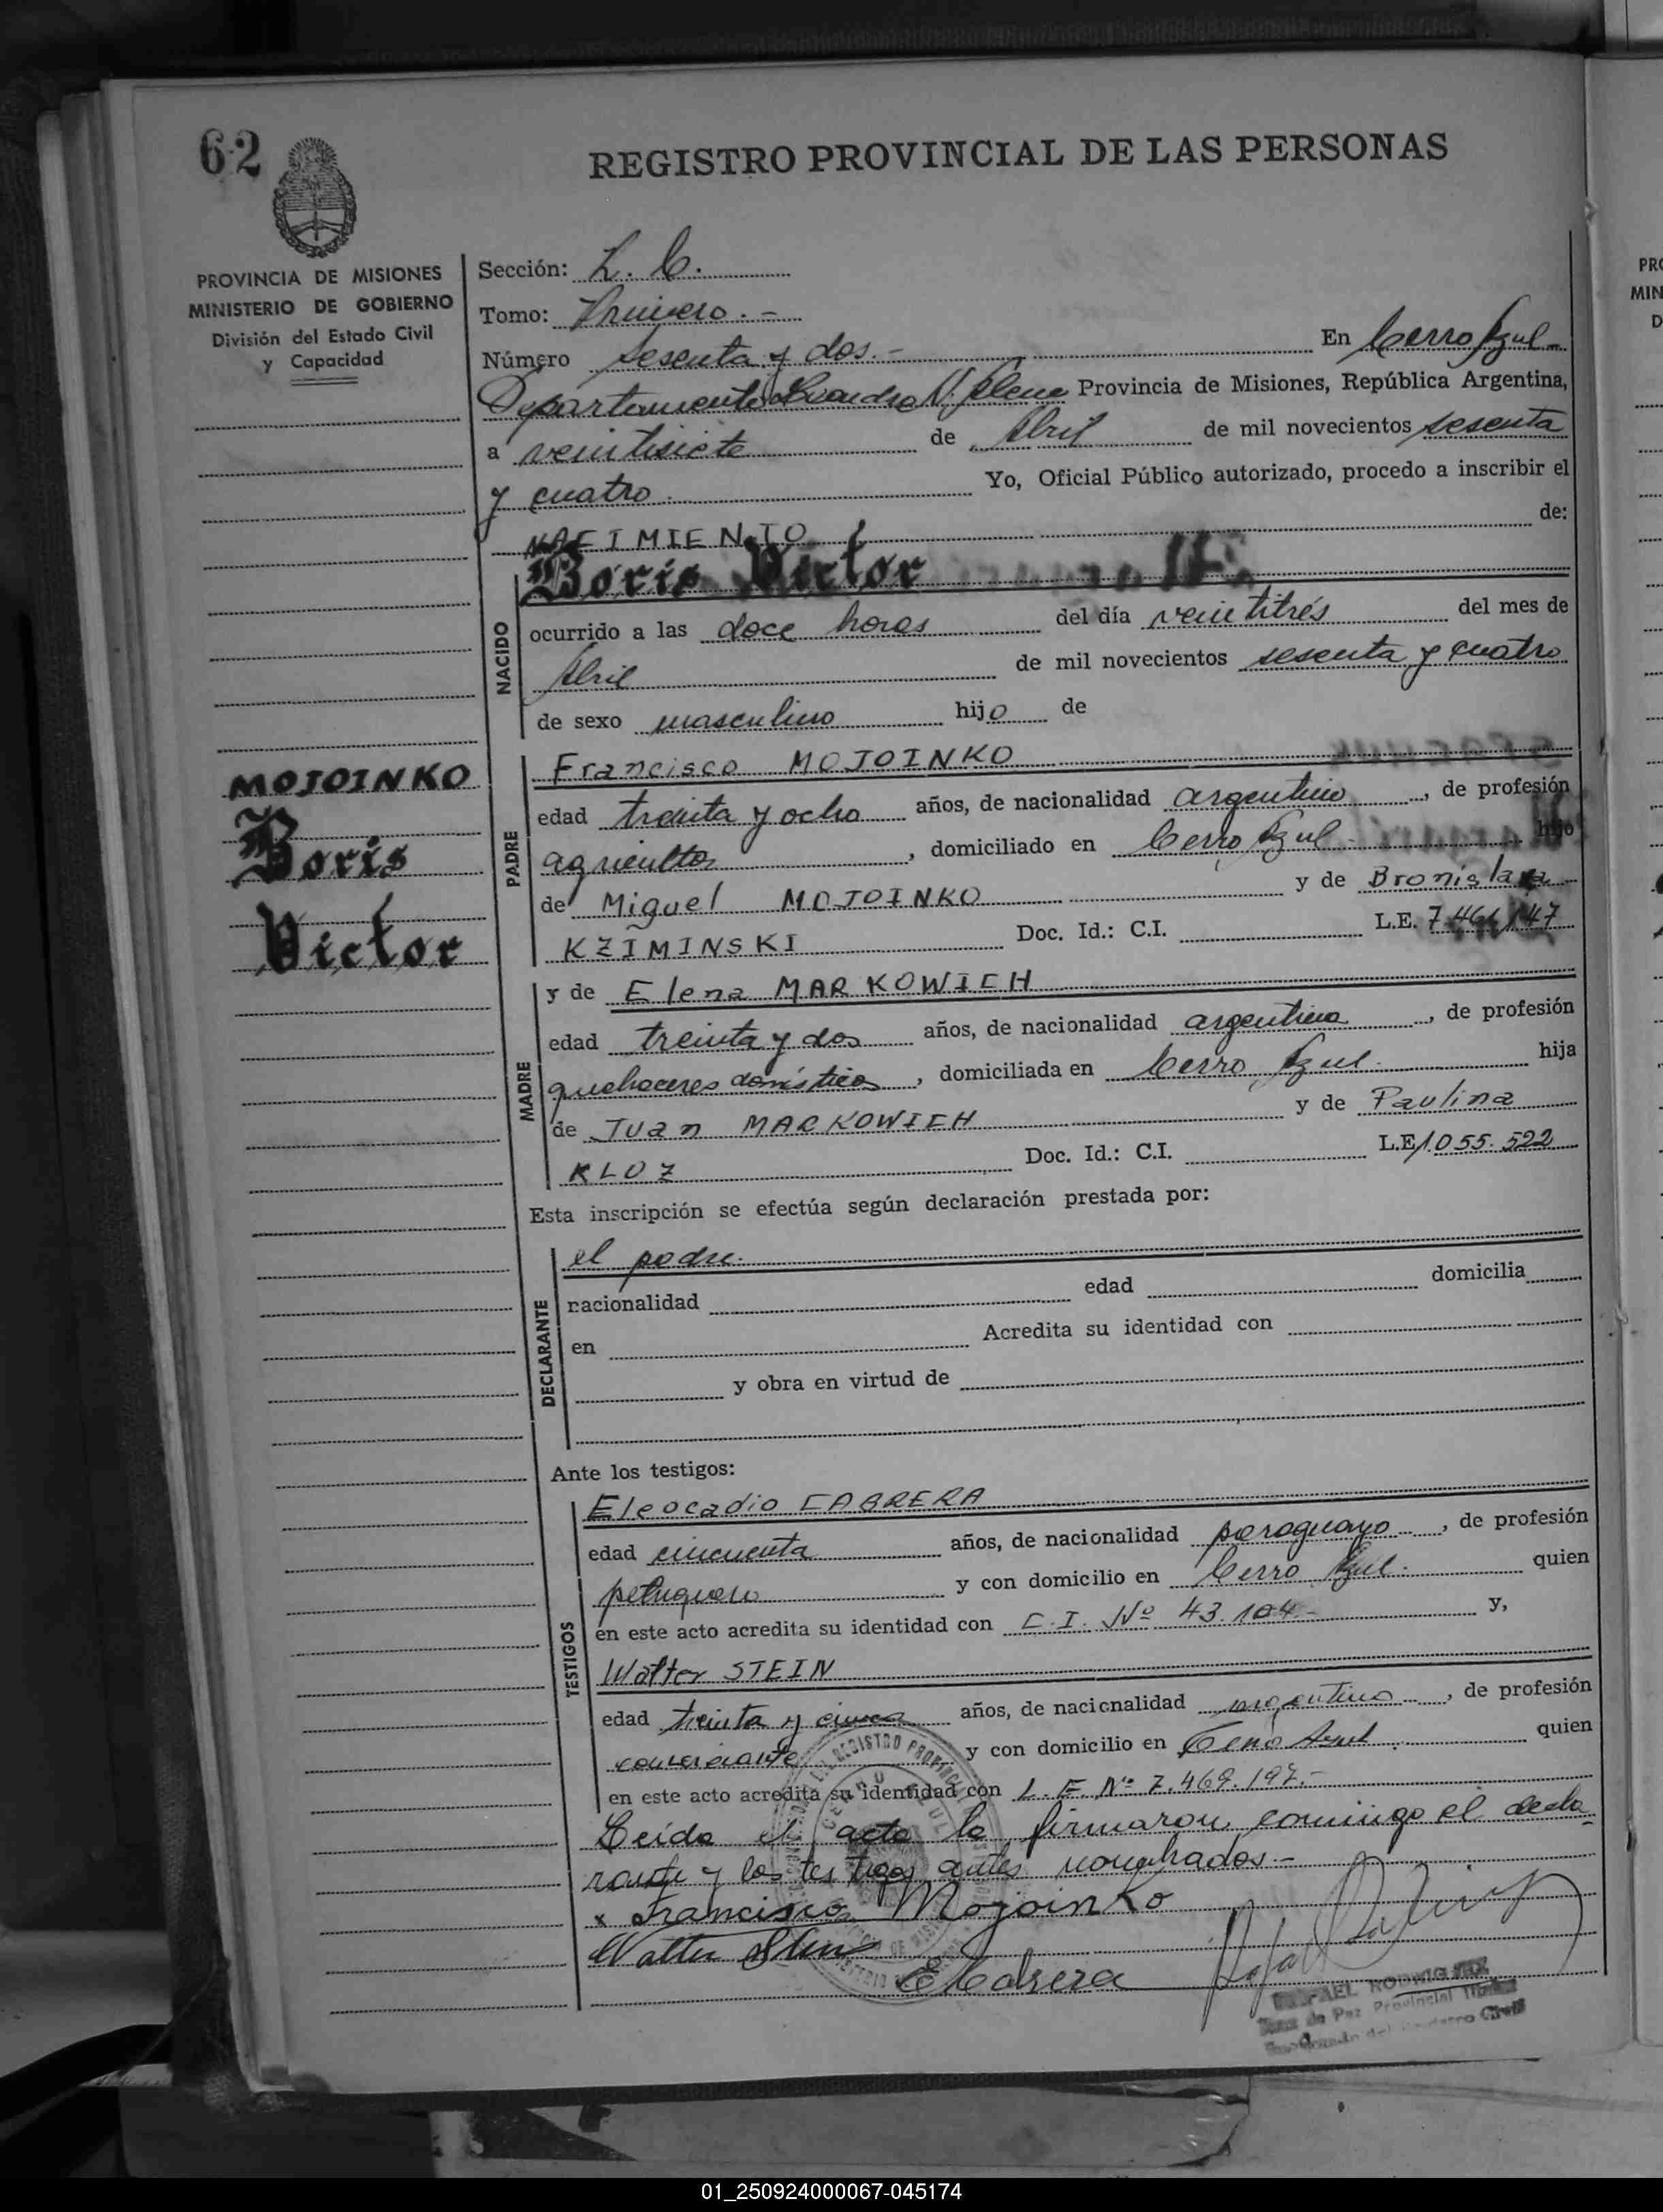 62
REGISTRO PROVINCIAL DE LAS PERSONAS
PROVINCIA DE MISIONES
MINISTERIO DE GOBIERNO
División del Estado Civil
y Capacidad
Sección: L. C.
Tomo: Primero . -
Número sesenta y dos. - En Cerro Azul -
Departamento Leandro N. Alem Provincia de Misiones, República Argentina,
a veintisiete de Abril de mil novecientos sesenta
y cuatro Yo, Oficial Público autorizado, procedo a inscribir el
NACIMIENTO de:
Boris Victor
NACIDO
ocurrido a las doce horas del día veintitrés del mes de
Abril de mil novecientos sesenta y cuatro
de sexo masculino hijo de
MOJOINKO
Boris
Victor
PADRE
Francisco MOJOINKO
edad treinta y ocho años, de nacionalidad argentino, de profesión
agricultor, domiciliado en Cerro Azul hijo
de Miguel MOJOINKO y de Bronislava
KZIMINSKI Doc. Id.: C.I. L.E.
MADRE
y de Elena MARKOWICH
edad treinta y dos años, de nacionalidad argentina, de profesión
quehaceres domésticos, domiciliada en Cerro Azul. hija
de Juan MARKOWICH y de Paulina
KLOZ Doc. Id.: C.I. L.E. 1.055.522
Esta inscripción se efectúa según declaración prestada por:
DECLARANTE
el padre.
nacionalidad edad domicilia
en Acredita su identidad con
y obra en virtud de
Ante los testigos:
TESTIGOS
Eleocadio CABRERA
edad cincuenta años, de nacionalidad paraguayo, de profesión
peluquero y con domicilio en Cerro Azul. quien
en este acto acredita su identidad con C.I. Nº 43.104.- y,
Walter STEIN
edad treinta y cinco años, de nacionalidad argentino, de profesión
comerciante y con domicilio en Cerro Azul quien
en este acto acredita su identidad con L.E. Nº 7.469.197.-
Leída el acta la firmaron conmigo el decla
rante y los testigos antes nombrados.-
x Francisco Mojoinko
Walter Stein
E Cabrera
RAFAEL RODRIGUEZ
Juez de Paz Provincial Titular
01_250924000067-045174